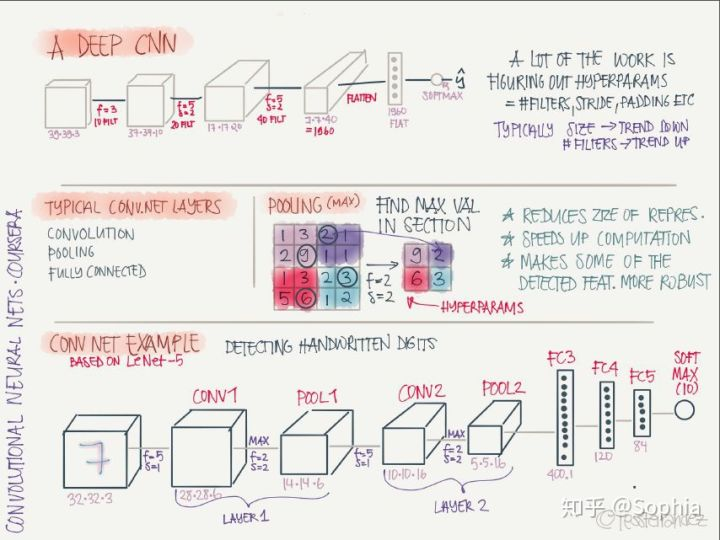 A DEEP CNN
39·39·3
f=3
10 FILT
37·37·10
f=5
s=2
20 FILT
17·17·20
f=5
s=2
40 FILT
7·7·40
=1960
FLATTEN
1960
FLAT
SOFTMAX
ŷ
A LOT OF THE WORK IS
FIGURING OUT HYPERPARAMS
= #FILTERS, STRIDE, PADDING ETC
TYPICALLY SIZE → TREND DOWN
#FILTERS → TREND UP
TYPICAL CONV.NET LAYERS
CONVOLUTION
POOLING
FULLY CONNECTED
POOLING (MAX)
FIND MAX VAL
IN SECTION
1 3 2 1
2 9 1 1
1 3 2 3
5 6 1 2
f=2
s=2
9 2
6 3
HYPERPARAMS
★ REDUCES SIZE OF REPRES.
★ SPEEDS UP COMPUTATION
★ MAKES SOME OF THE
DETECTED FEAT. MORE ROBUST
CONV NET EXAMPLE
BASED ON LeNet-5
DETECTING HANDWRITTEN DIGITS
7
32·32·3
f=5
s=1
CONV1
28·28·6
MAX
f=2
s=2
POOL1
14·14·6
LAYER 1
f=5
s=1
CONV2
10·10·16
MAX
f=2
s=2
POOL2
5·5·16
LAYER 2
FC3
400.1
FC4
120
FC5
84
SOFT
MAX
(10)
CONVOLUTIONAL NEURAL NETS · COURSERA
知乎 @Sophia
©TessFerrandez